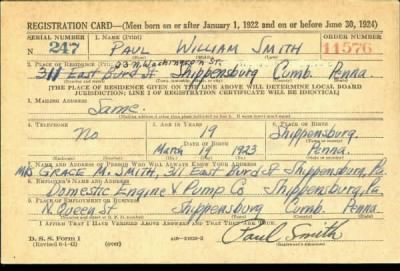 REGISTRATION CARD—(Men born on or after January 1, 1922 and on or before June 30, 1924)
SERIAL NUMBER 1. NAME (Print) ORDER NUMBER
N 247 PAUL WILLIAM SMITH 11576
53 N. Washington St.
2. PLACE OF RESIDENCE (Print)
311 East Burd St Shippensburg Cumb. Penna.
[THE PLACE OF RESIDENCE GIVEN ON THE LINE ABOVE WILL DETERMINE LOCAL BOARD
JURISDICTION; LINE 2 OF REGISTRATION CERTIFICATE WILL BE IDENTICAL]
3. MAILING ADDRESS
Same.
4. TELEPHONE 5. AGE IN YEARS 6. PLACE OF BIRTH
No 19 Shippensburg
DATE OF BIRTH
March 19 1923 Penna.
7. NAME AND ADDRESS OF PERSON WHO WILL ALWAYS KNOW YOUR ADDRESS
MRS GRACE M. SMITH, 311 East Burd St Shippensburg, Pa.
8. EMPLOYER'S NAME AND ADDRESS
Domestic Engine & Pump Co Shippensburg, Pa.
9. PLACE OF EMPLOYMENT OR BUSINESS
N. Queen St Shippensburg Cumb. Penna.
I AFFIRM THAT I HAVE VERIFIED ABOVE ANSWERS AND THAT THEY ARE TRUE.
D. S. S. Form 1
(Revised 6-1-42) (over) Paul Smith